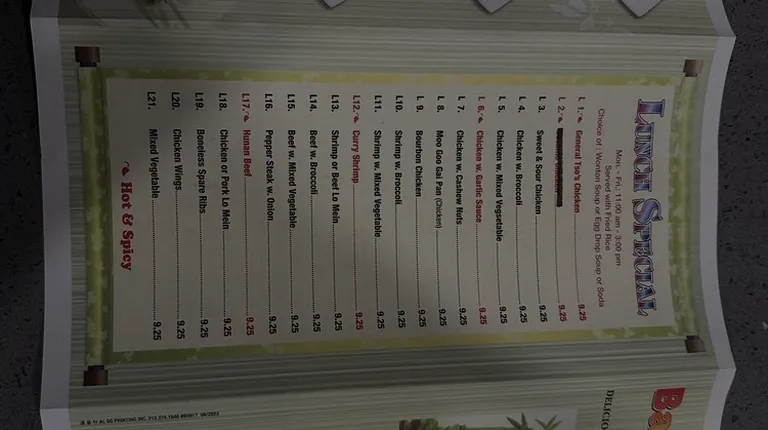 LUNCH SPECIAL
Mon. - Fri.: 11:00 am - 3:00 pm
Served with Fried Rice
Choice of : Wonton Soup or Egg Drop Soup or Soda
L 1. General Tso's Chicken 9.25
L 2. 9.25
L 3. Sweet & Sour Chicken 9.25
L 4. Chicken w. Broccoli 9.25
L 5. Chicken w. Mixed Vegsetable 9.25
L 6. Chicken w. Garlic Sauce 9.25
L 7. Chicken w. Cashew Nuts 9.25
L 8. Moo Goo Gai Pan (Chicken) 9.25
L 9. Bourbon Chicken 9.25
L10. Shrimp w. Broccoli 9.25
L11. Shrimp w. Mixed Vegetable 9.25
L12. Curry Shrimp 9.25
L13. Shrimp or Beef Lo Mein 9.25
L14. Beef w. Broccoli 9.25
L15. Beef w. Mixed Vegetable 9.25
L16. Pepper Steak w. Onion 9.25
L17. Hunan Beef 9.25
L18. Chicken or Pork Lo Mein 9.25
L19. Boneless Spare Ribs 9.25
L20. Chicken Wings 9.25
L21. Mixed Vegetable 9.25
Hot & Spicy